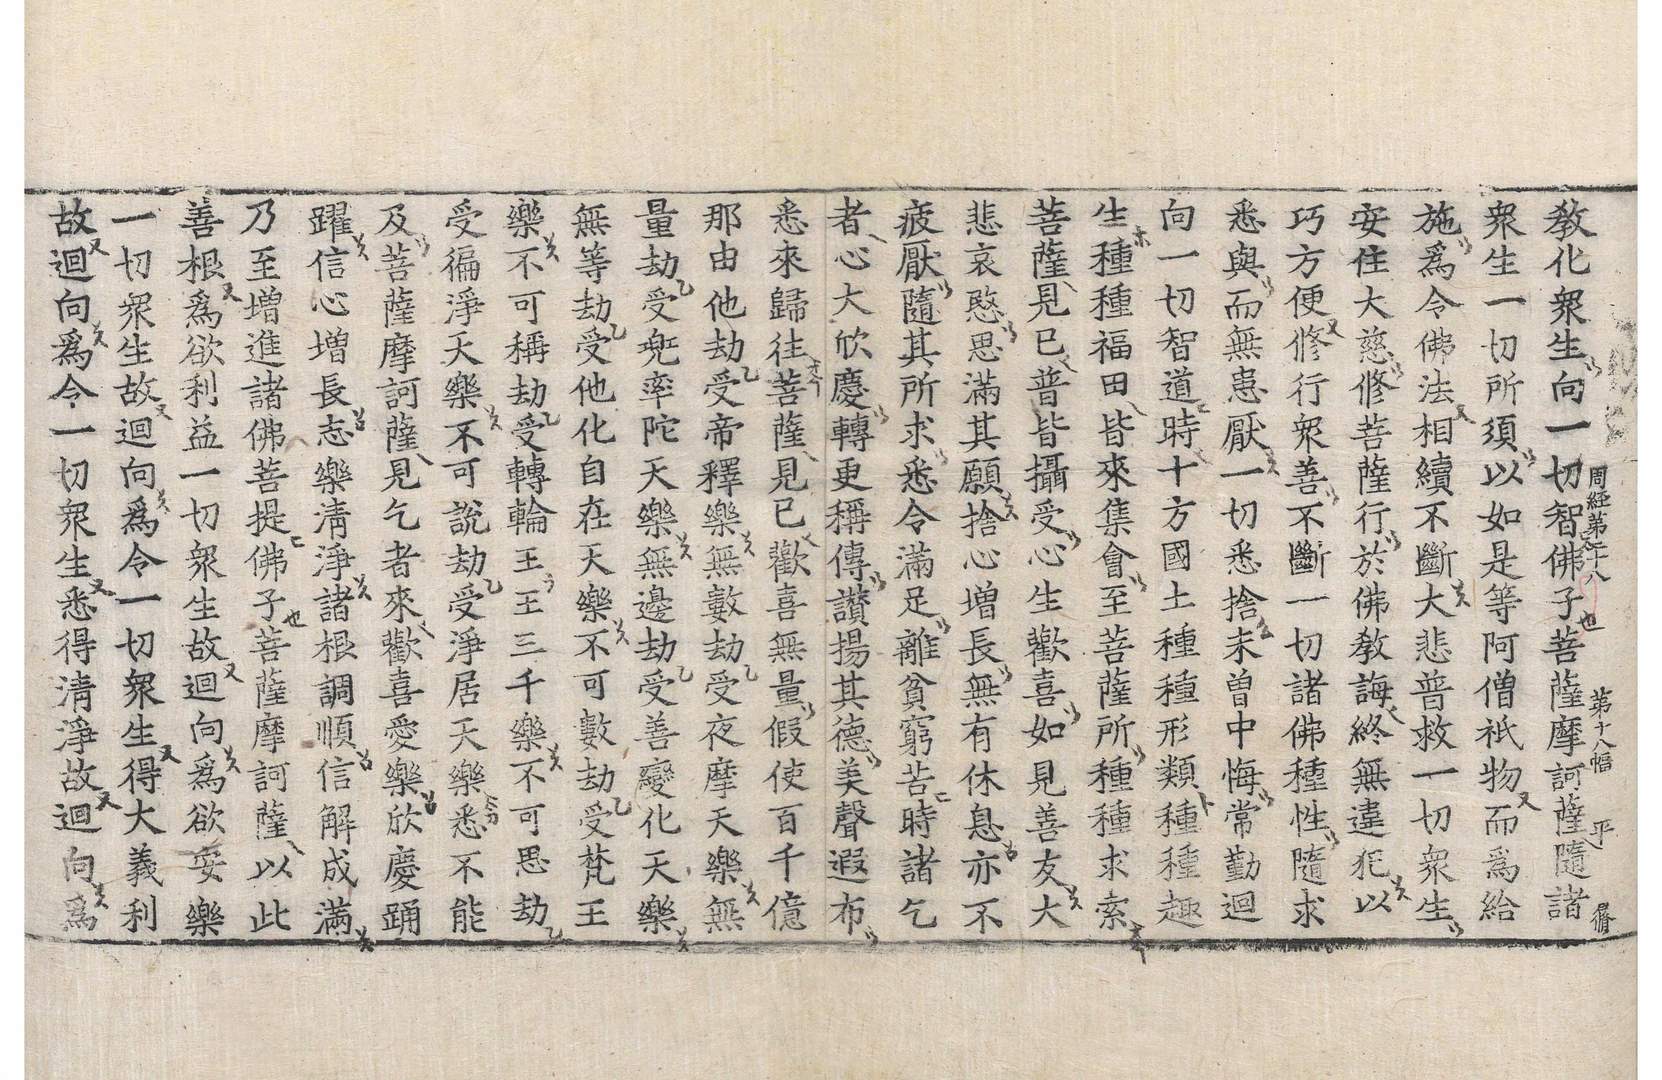 教化衆生向一切智佛子菩薩摩訶薩隨諸
衆生一切所須以如是等阿僧祇物而爲給
施爲令佛法相續不斷大悲普救一切衆生
安住大慈修菩薩行於佛教誨終無違犯以
巧方便修行衆善不斷一切諸佛種性隨求
悉與而無患厭一切悉捨未曾中悔常勤迴
向一切智道時十方國土種種形類種種趣
生種種福田皆來集會至菩薩所種種求索
菩薩見已普皆攝受心生歡喜如見善友大
悲哀愍思滿其願捨心增長無有休息亦不
疲厭隨其所求悉令滿足離貧窮苦時諸乞
者心大欣慶轉更稱傳讚揚其德美聲遐布
悉來歸往菩薩見已歡喜無量假使百千億
那由他劫受帝釋樂無數劫受夜摩天樂無
量劫受兜率陀天樂無邊劫受善變化天樂
無等劫受他化自在天樂不可數劫受梵王
樂不可稱劫受轉輪王王三千樂不可思劫
受徧淨天樂不可說劫受淨居天樂悉不能
及菩薩摩訶薩見乞者來歡喜愛樂欣慶踊
躍信心增長志樂淸淨諸根調順信解成滿
乃至增進諸佛菩提佛子菩薩摩訶薩以此
善根爲欲利益一切衆生故迴向爲欲安樂
一切衆生故迴向爲令一切衆生得大義利
故迴向爲令一切衆生悉得清淨故迴向爲
周經第二十八 第十八幅 平